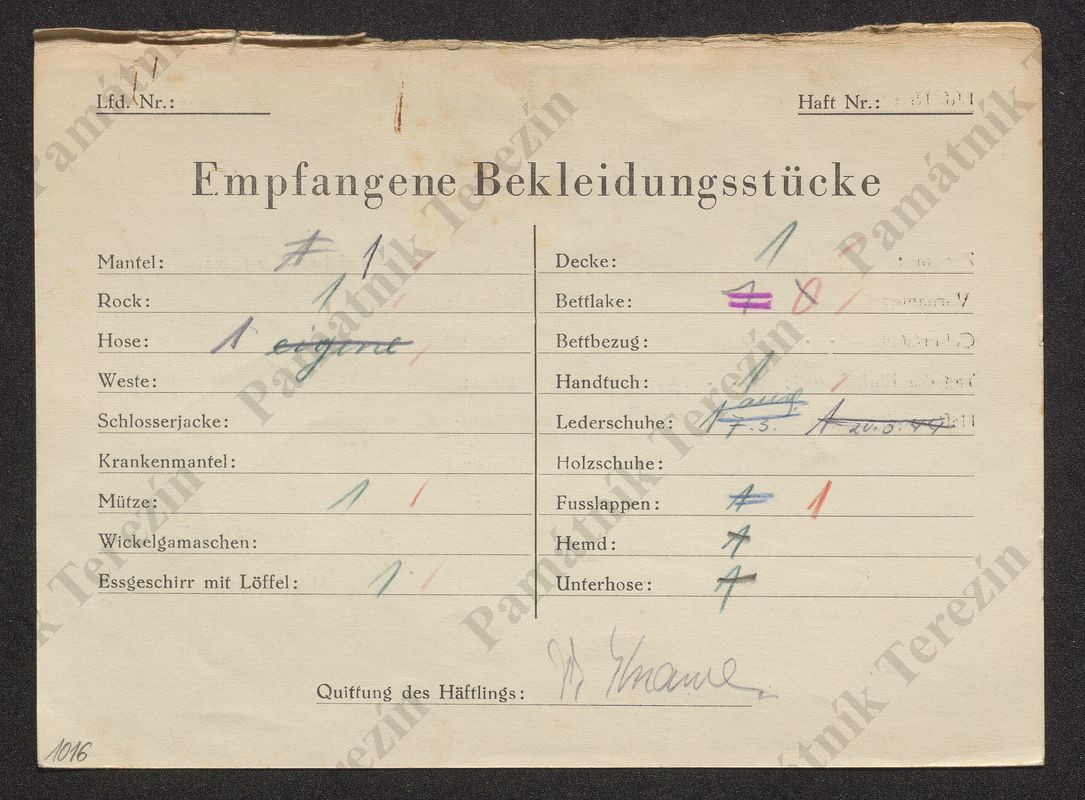 Lfd. Nr.:
Haft Nr.:
Empfangene Bekleidungsstücke
Mantel: 1 1
Rock: 1
Hose: 1 eigene
Weste:
Schlosserjacke:
Krankenmantel:
Mütze: 1 1
Wickelgamaschen:
Essgeschirr mit Löffel: 1 1
Decke: 1
Bettlake: 1 0
Bettbezug:
Handtuch: 1
Lederschuhe: 1 7.3. 1
Holzschuhe:
Fusslappen: 1 1
Hemd: 1
Unterhose: 1
Quittung des Häftlings:
1016
Památník Terezín